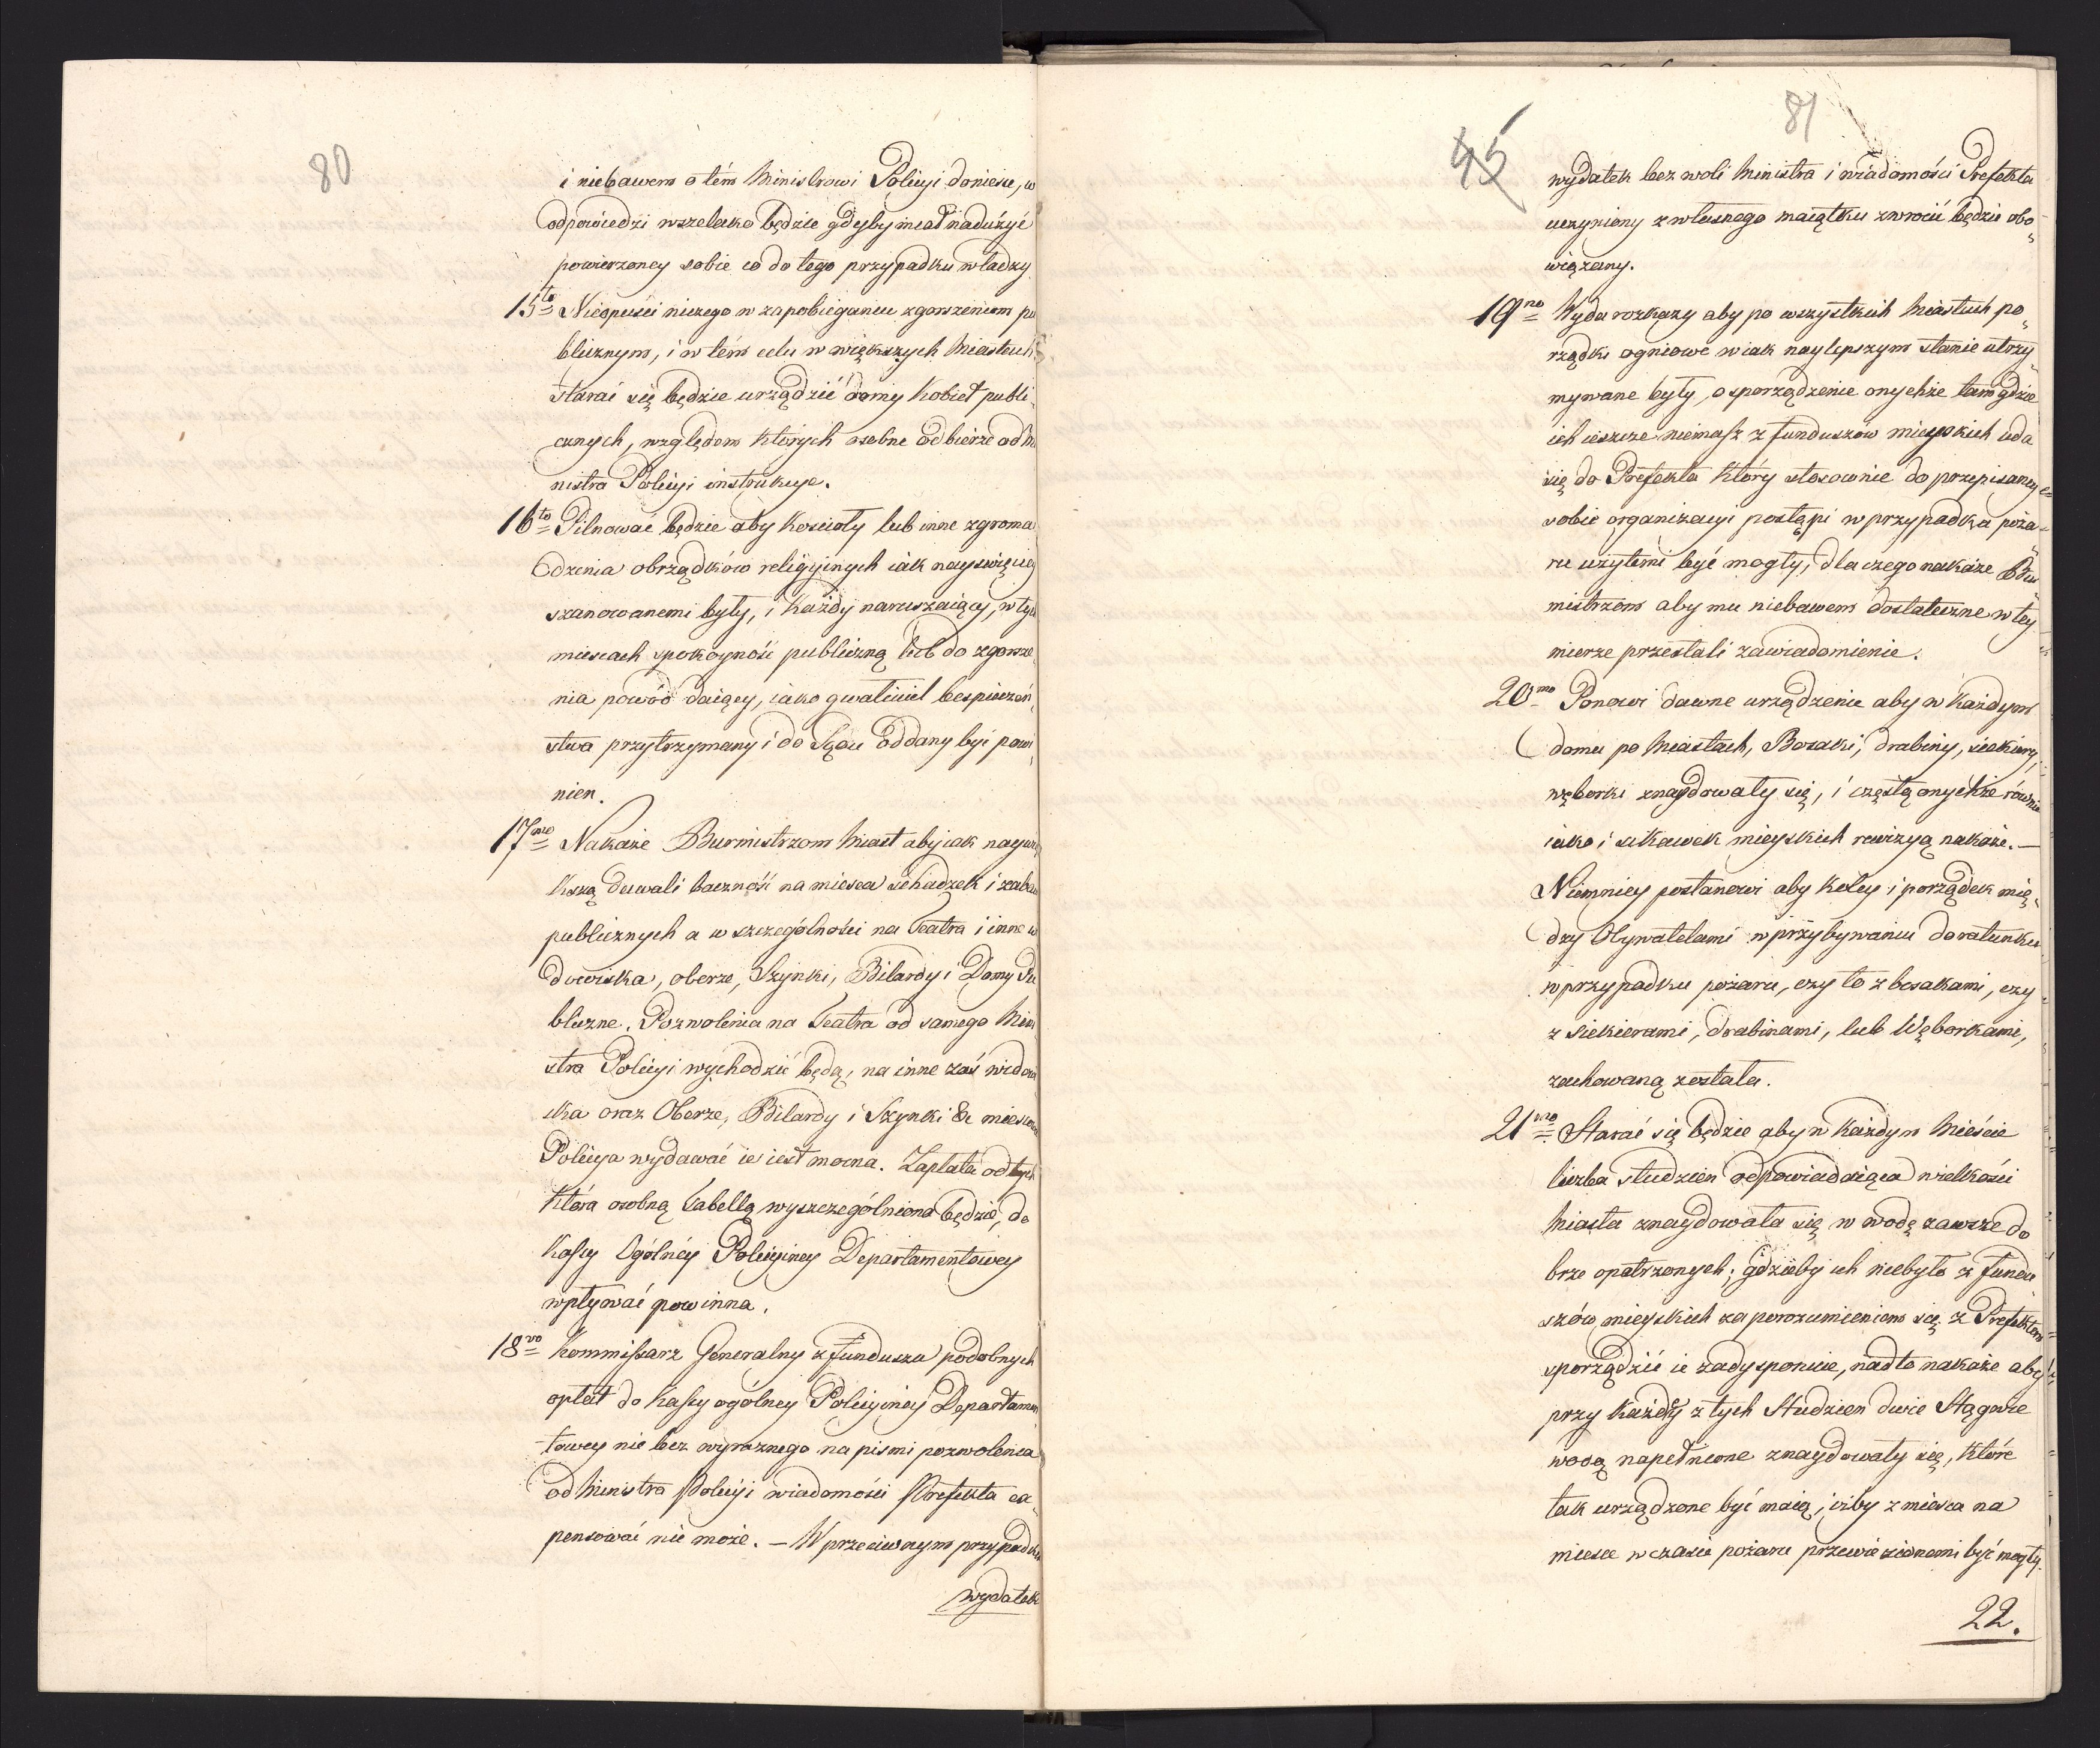 80
i niebawem o tém Ministrowi Policyi doniesie, w
odpowiedzi wszelako będzie gdyby miał nadużyć
powierzoney sobie co do tego przypadku władzy
15to Nieopuści niczego w zapobieganiu zgorszeniom pu
blicznym, i w tém celu w większych Miastach
starać się będzie urządzić domy Kobiet publi,
cznych, względem których osobne odbierze od Mi
nistra Policyi instrukcye.
16to Pilnować będzie aby Kościoły lub inne zgroma
dzenia obrządków religiynych iak nayswięciey
szanowanemi były, i Każdy naruszaiący, w tych
mieścach spokoyność publiczną lub do zgorsze,
nia powód daiący, iako gwałciciel bespieczeń,
stwa przytrzymany i do Sądu oddany być powi,
nien.
17mo Nakaże Burmistrzom Miast aby iak naywię
kszą dawali baczność na miesca schadzek i zabaw
publicznych a w szczególności na Teatra i inne wi
dowiska, oberze, Szynki, Bilardy i Domy Pu
bliczne. Pozwolenia na Teatra od samego Mini
stra Policyi wychodzić będą, na inne zaś widowi
ska oraz Oberze, Bilardy i Szynki & miescowa
Policya wydawać ie iest mocna. Zapłata od tych
która osobną Tabellą wyszczególniona będzie, do
Kassy Ogólnéy Policyiney Departamentowey
wpływać powinna.
18vo Kommissarz Generalny z funduszu podobnych
opłat do Kassy ogólney Policyiney Departamen
towey nie bez wyraznego na pismi pozwolenia
od Ministra Policyi i wiadomości Prefekta ex,
pensować nie może. – W przeciwnym przypadku
wydatek
81
45
wydatek bez woli Ministra i wiadomości Prefekta
uczyniony z własnego maiątku zwrocić będzie obo,
wiązany.
19no Wyda rozkazy aby po wszystkich Miastach po,
rządki ogniowe w iak naylepszym stanie utrzy,
mywane były, o sporządzenie onychże tam gdzie
ich ieszcze niemasz z funduszów mieyskich uda
się do Prefekta który stosownie do przepisaney
sobie organizacyi postąpi w przypadku poża-
ru użytemi być mogły, dla czego nakaże Bur
mistrzom aby mu niebawem dostateczne w tey
mierze przesłali zawiadomienie.
20mo Ponowi dawne urządzenie aby w każdym
domu po Miastach, Bosaki, drabiny, siekiery,
węborki znaydowały się, i częstą onychże równie
iako i sikawek mieyskich rewizyą nakaże. –
Niemniey postanowi aby koley i porządek mię,
dzy Obywatelami w przybywaniu do ratunku
w przypadku pożaru, czy to z bosakami, czy
z siekierami, drabinami, lub Węborkami,
zachowaną została.
21mo Starać się będzie aby w Każdym Mieście
liczba studzien odpowiadaiąca wielkości
Miasta znaydowała się w wodę zawsze do
brze opatrzonych; gdzieby ich niebyło z fundu
szów mieyskich za porozumieniem się z Prefektem
sporządzić ie zadysponuie, nadto nakaże aby
przy każdéy z tych Studzien dwie Stągwie
wodą napełnione znaydowały się, które
tak urządzone być maią, iżby z miesca na
miesce w czasie pożaru przewiezionemi być mogły.
22.